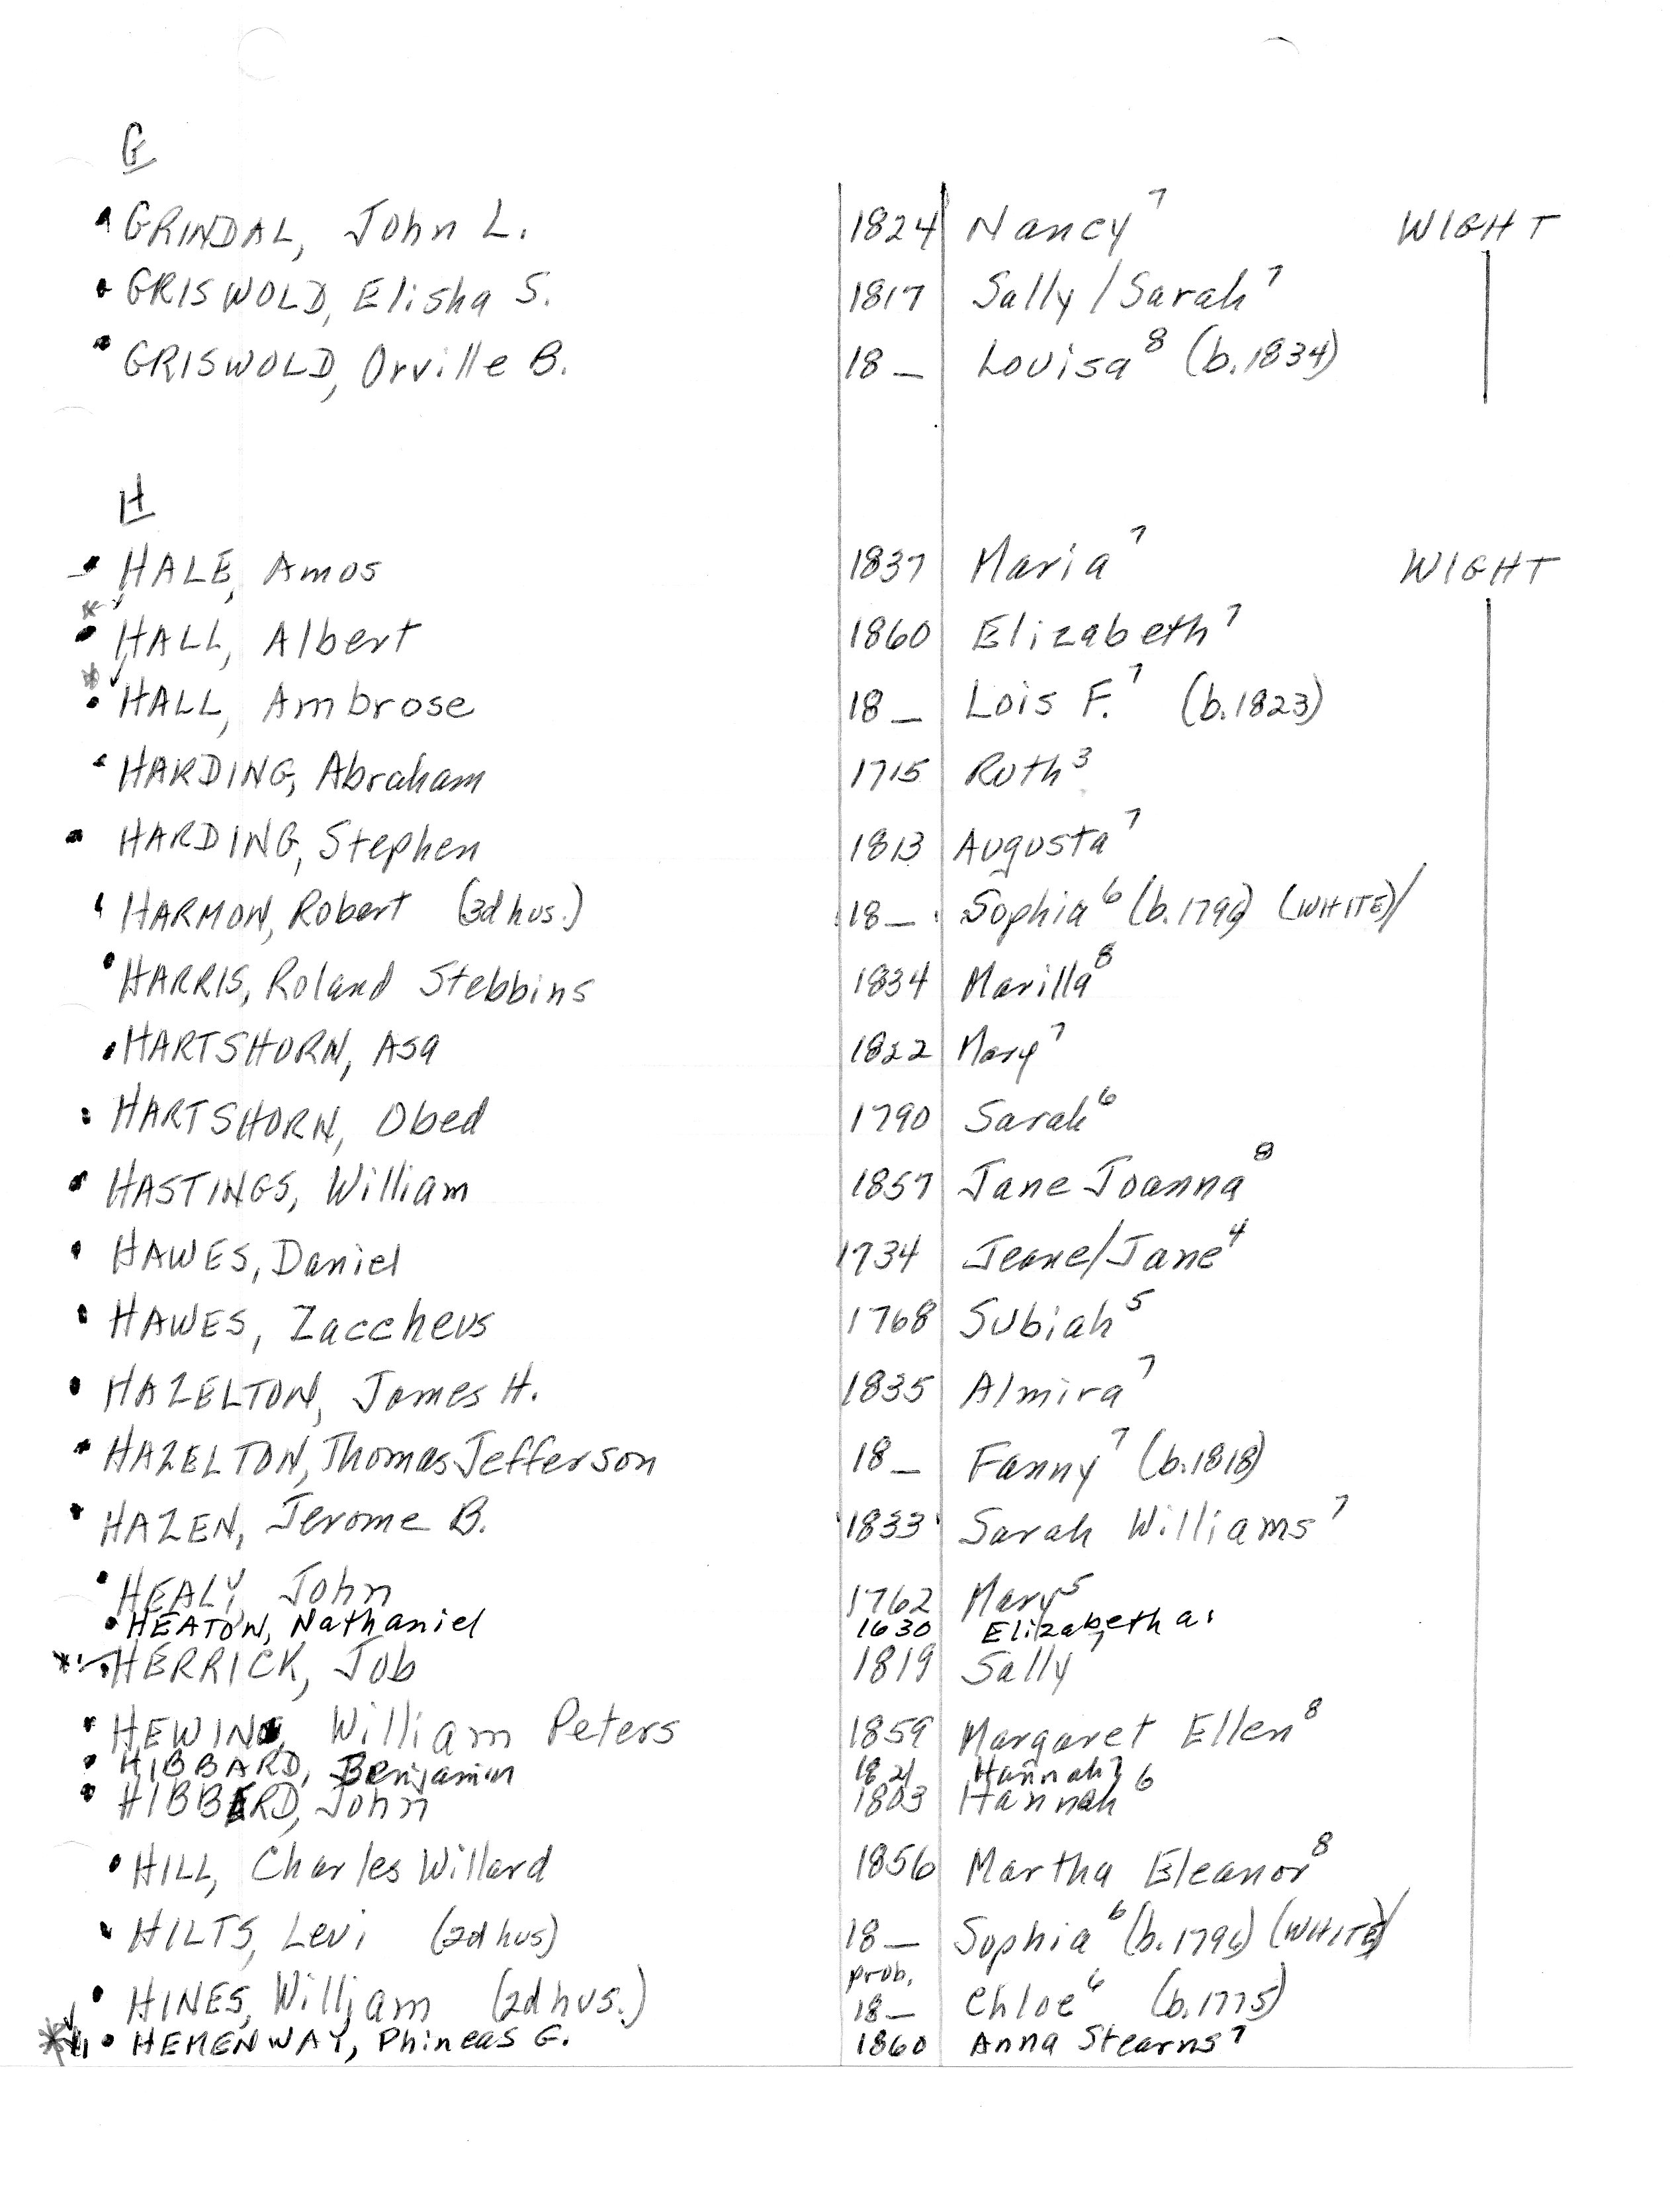 G
GRINDAL, John L. 1824 Nancy⁷ WIGHT
GRISWOLD, Elisha S. 1817 Sally/Sarah⁷
GRISWOLD, Orville B. 18_ Louisa⁸ (b.1834)
H
HALE, Amos 1837 Maria⁷ WIGHT
HALL, Albert 1860 Elizabeth⁷
HALL, Ambrose 18_ Lois F.⁷ (b.1823)
HARDING, Abraham 1715 Ruth³
HARDING, Stephen 1813 Augusta⁷
HARMON, Robert (3d hus.) 18_ Sophia⁶ (b.1796) (WHITE)/
HARRIS, Roland Stebbins 1834 Marilla⁸
HARTSHORN, Asa 1822 Mary⁷
HARTSHORN, Obed 1790 Sarah⁶
HASTINGS, William 1857 Jane Joanna⁸
HAWES, Daniel 1734 Jeane/Jane⁴
HAWES, Zaccheus 1768 Subiah⁵
HAZELTON, James H. 1835 Almira⁷
HAZELTON, Thomas Jefferson 18_ Fanny⁷ (b.1818)
HAZEN, Jerome B. 1833 Sarah Williams⁷
HEALY, John 1762 Mary⁵
HEATON, Nathaniel 1630 Elizabeth a.
HERRICK, Job 1819 Sally⁷
HEWINS, William Peters 1859 Margaret Ellen⁸
HIBBARD, Benjamin 1821 Hannah⁷
HIBBARD, John 1803 Hannah⁶
HILL, Charles Willard 1856 Martha Eleanor⁸
HILTS, Levi (2d hus) 18_ Sophia⁶ (b.1796) (WHITE)/
HINES, William (2d hus.) prob. 18_ Chloe⁶ (b.1775)
HEMENWAY, Phineas G. 1860 Anna Stearns⁷